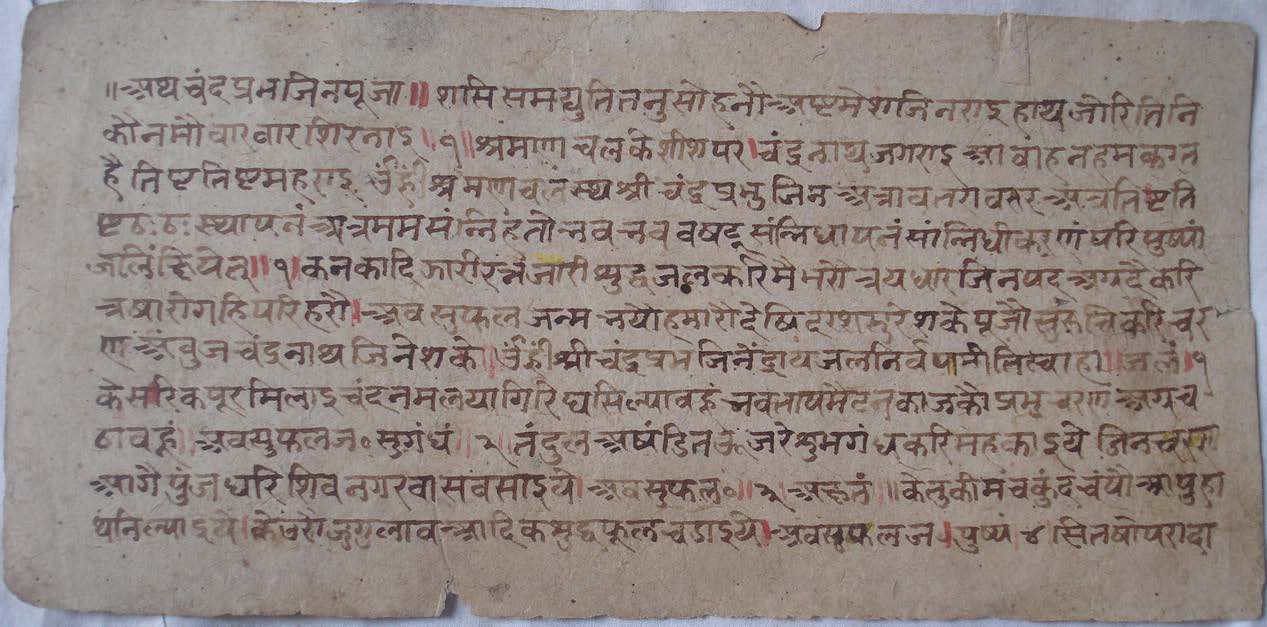 ॥अथ चंदप्रभजिनपूजा॥ शासि समद्युतितनुसोहनौ अष्टमेशजिनराइ हाथ जोरि तिनि
कौ नमौ वारवार शिरनाइ ।१॥ श्रंमाणचलके शीशपरं । चंद्रनाथ जगराइ आवाहन हम करत
है तिष्ट तिष्ट महराइ ॐह्रीं श्रंमणचलं स्थ श्री चंद्रप्रभु जिन अत्रावतरावतर अत्र तिष्ट ति
ष्ट ठः ठः स्थापनं अत्र मम संन्निहतो भव भव वषट् संन्निधापनं सांन्निधीकरणं परिपुष्पां
जलिं क्षिपेत्॥१। कनकादि झारी रत्नजारी शुद्धजल करिमै भरौ त्रय धार जिनपद अग्रदै करि
त्रषा रोगहि परिहरौ। अव सुफल जन्म भयो हमारौ देषि दरश सुरेशके पूजौ सुरुचि करि चर
ण अंवुज चंद्रनाथ जिनेशके॥ ॐह्रीं श्री चंद्रप्रभ जिनेंद्राय जलनिर्वपामीति स्वाहा॥ जलं।१
केसरि कपूर मिलाइ चंदन मलयागिरि घसि ल्यावहूं भवतापभेदनकाजकौ प्रभुचरण अग्र च
ढावहूं। अव सुफल ज॰ सुगंधं॥२। तंदुल अषंडित ऊजरे शुभगंध करि महकाइये जिन चरण
आगै पुंज धरि शिवनगरवास वसाइये। अव सुफल॰॥३। अक्षतं॥ केतुकी मंचकुंद चंपौ आपु हा
थनि ल्याइये। केउरो जुगुलाव आदिक सुद्ध फूल चढाइये। अव सुफल ज। पुष्पं ४ सित षोपरा दा